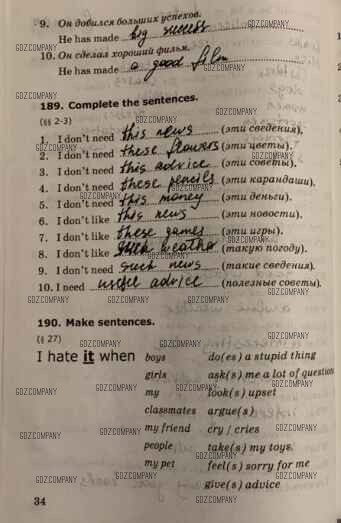 9. Он добился больших успехов.
He has made big success
10. Он сделал хороший фильм.
He has made a good film
189. Complete the sentences.
(§§ 2-3)
1. I don't need this news (эти сведения).
2. I don't need these flowers (эти цветы).
3. I don't need this advice (эти советы).
4. I don't need these pencils (эти карандаши).
5. I don't need this money (эти деньги).
6. I don't like this news (эти новости).
7. I don't like these games (эти игры).
8. I don't like such weather (такую погоду).
9. I don't need such news (такие сведения).
10. I need useful advice (полезные советы).
190. Make sentences.
(§ 27)
I hate it when boys do(es) a stupid thing
girls ask(s) me a lot of questions
my look(s) upset
classmates argue(s)
my friend cry / cries
people take(s) my toys.
my pet feel(s) sorry for me
give(s) advice
34
GDZ.COMPANY